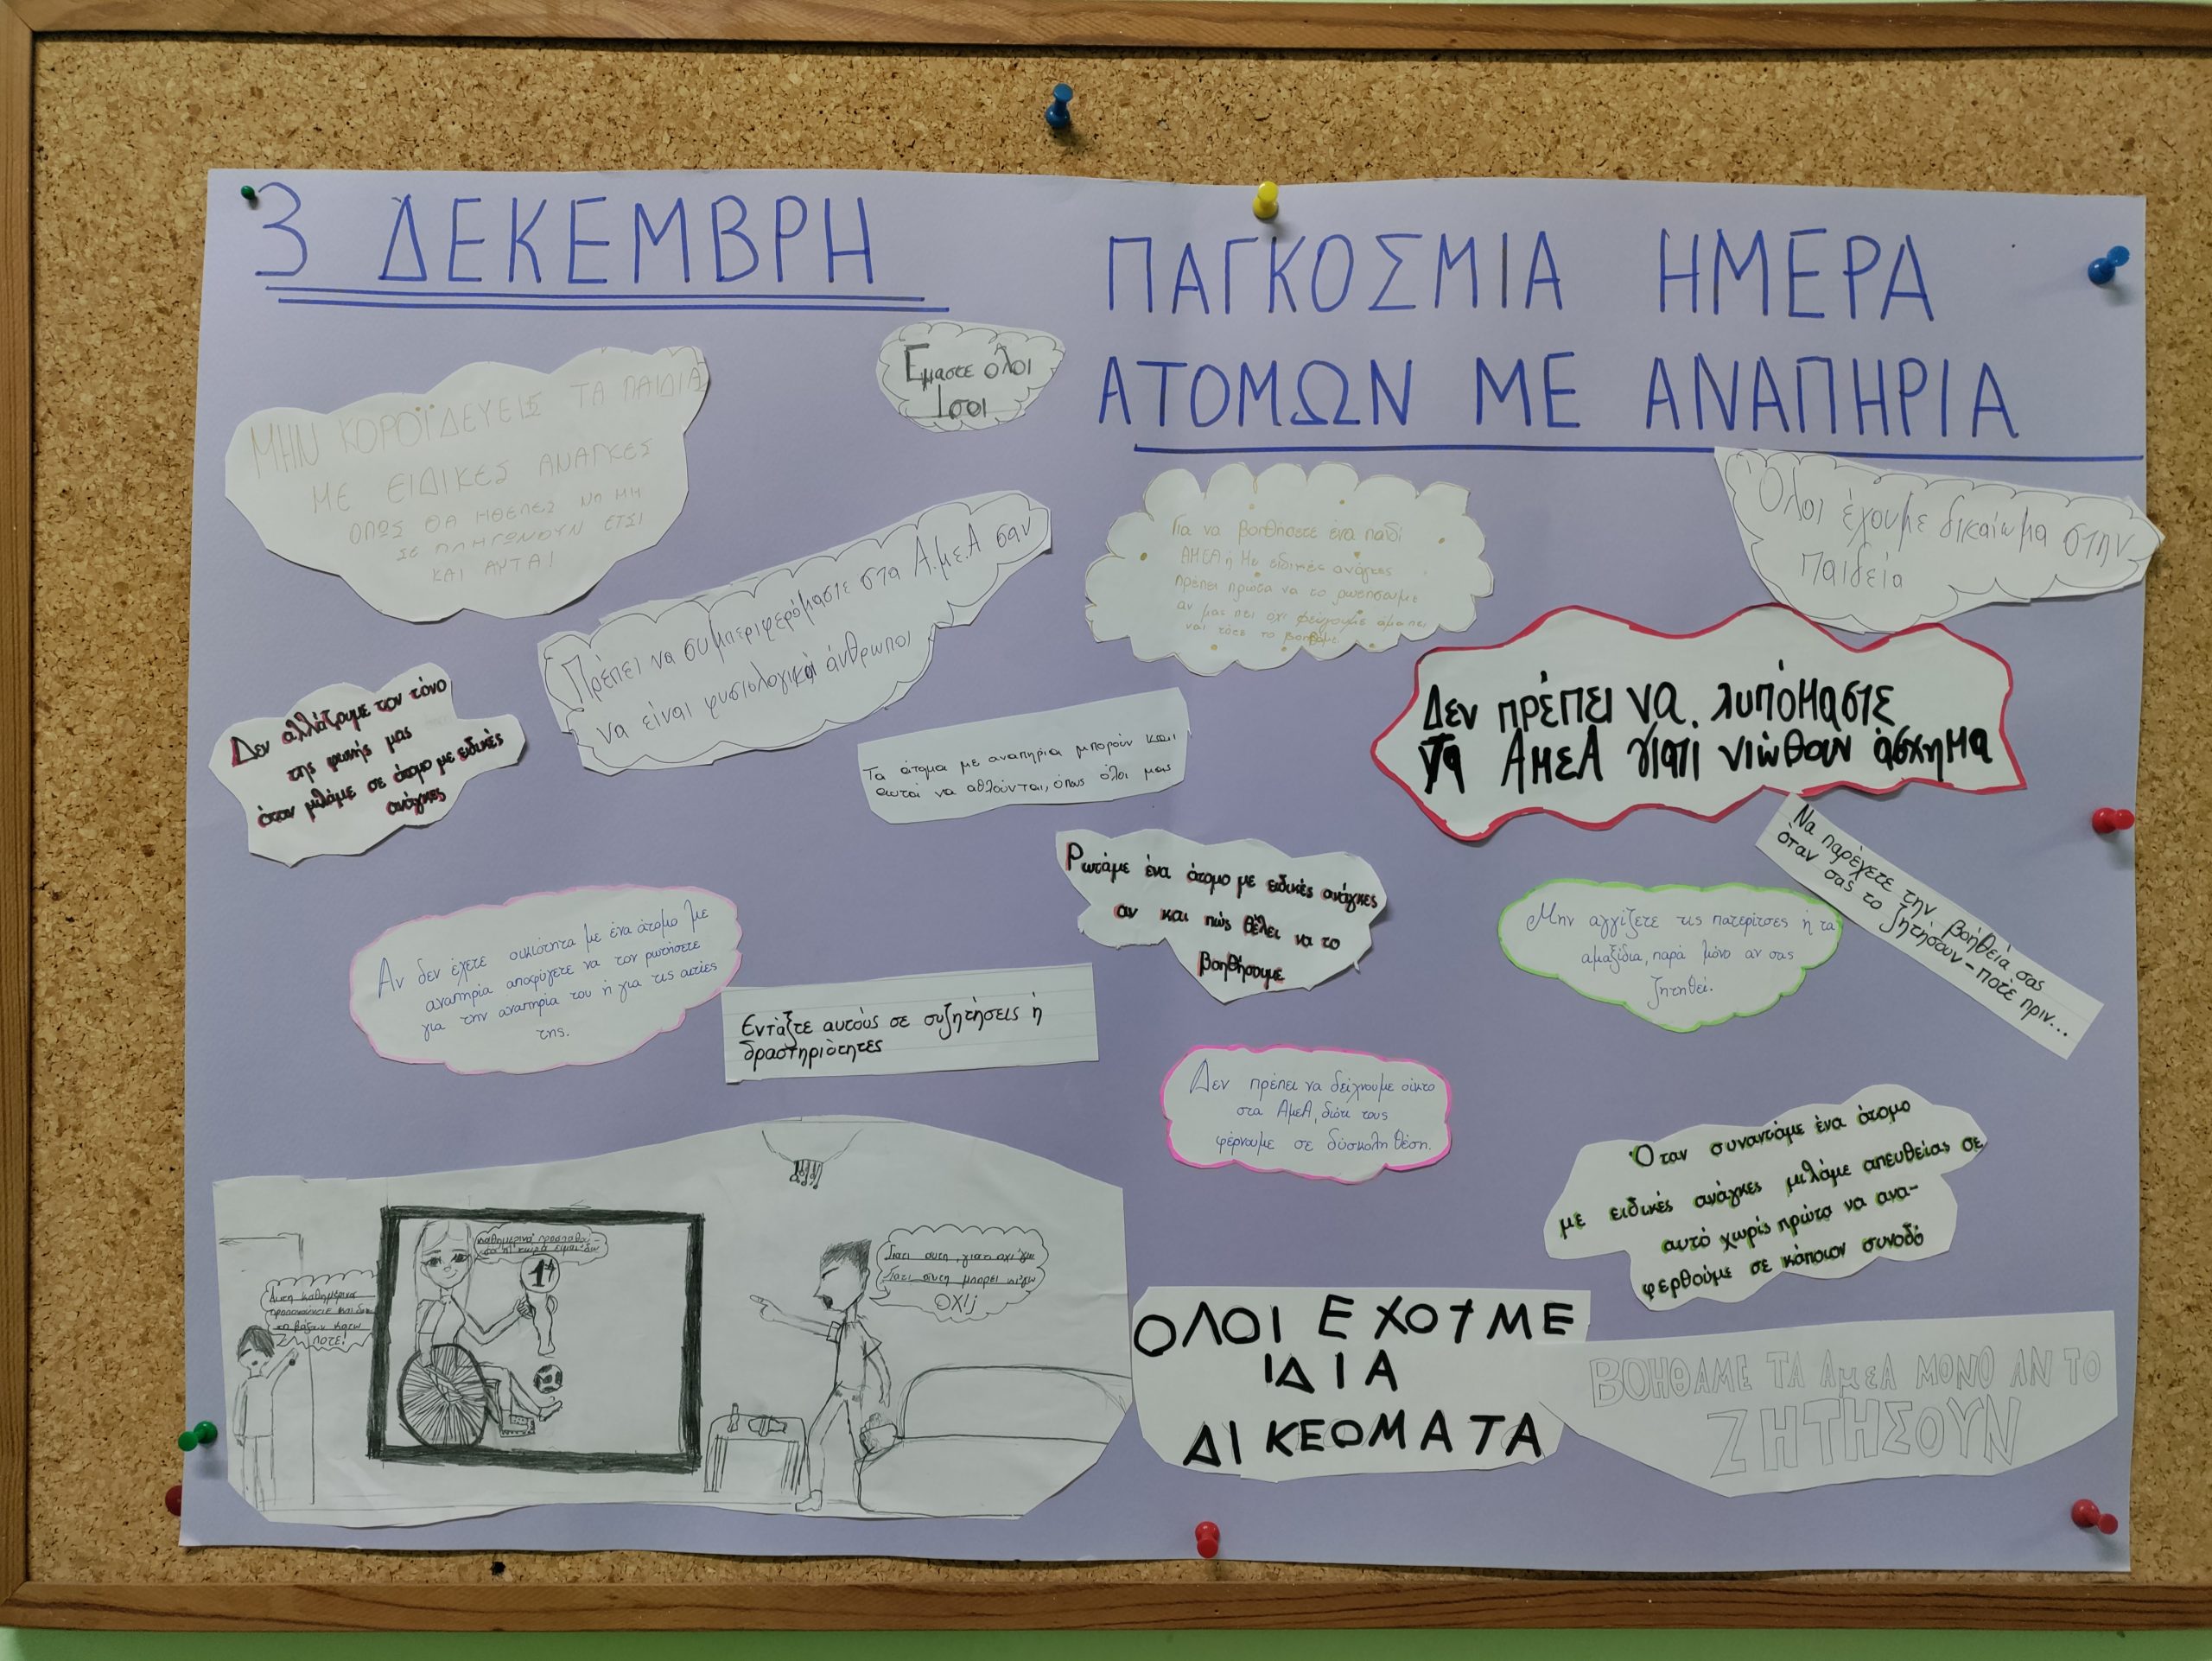 3 ΔΕΚΕΜΒΡΗ
ΠΑΓΚΟΣΜΙΑ ΗΜΕΡΑ
ΑΤΟΜΩΝ ΜΕ ΑΝΑΠΗΡΙΑ
Εμαστε όλοι
Ισοι
ΜΗΝ ΚΟΡΟΪΔΕΥΕΙΣ ΤΑ ΠΑΙΔΙΑ
ΜΕ ΕΙΔΙΚΕΣ ΑΝΑΓΚΕΣ
ΟΠΩΣ ΘΑ ΗΘΕΛΕΣ ΝΑ ΜΗ
ΣΕ ΠΛΗΓΩΝΟΥΝ ΕΤΣΙ
ΚΑΙ ΑΥΤΑ!
Πρέπει να συμπεριφερόμαστε στα Α.με.Α σαν
να είναι φυσιολογικοί άνθρωποι
Για να βοηθήσετε ένα παιδί
ΑΜΕΑ ή Με ειδικές ανάγκες
πρέπει πρώτα να το ρωτήσουμε
αν μας πει όχι φεύγουμε αμα πει
ναι τότε το βοηθάμε
Όλοι έχουμε δικαίωμα στην
Παιδεία
Δεν αλλάζουμε τον τόνο
της φωνής μας
όταν μιλάμε σε άτομο με ειδικές
ανάγκες
Τα άτομα με αναπηρία μπορούν και
αυτοί να αθλούνται, όπως όλοι μας
Δεν πρέπει να λυπόμαστε
τα ΑμεΑ γιατί νιώθουν άσχημα
Ρωτάμε ένα άτομο με ειδικές ανάγκες
αν και πώς θέλει να το
βοηθήσουμε
Να παρέχετε την βοήθειά σας
όταν σας το ζητήσουν-ποτέ πριν...
Μην αγγίζετε τις πατερίτσες ή τα
αμαξίδια, παρά μόνο αν σας
ζητηθεί.
Αν δεν έχετε οικιότητα με ένα άτομο με
αναπηρία αποφύγετε να τον ρωτήσετε
για την αναπηρία του ή για τις αιτίες
της.
Εντάξτε αυτούς σε συζητήσεις ή
δραστηριότητες
Δεν πρέπει να δείχνουμε οίκτο
στα ΑμεΑ, διότι τους
φέρνουμε σε δύσκολη θέση.
Όταν συναντάμε ένα άτομο
με ειδικές ανάγκες μιλάμε απευθείας σε
αυτό χωρίς πρώτα να ανα-
φερθούμε σε κάποιον συνοδό
1η
Γιατι αυτη, γιατι οχι εγω
Γιατι αυτη μπορει κι εγω
ΟΧΙ;
Αυτη καθημερινα
ΠΟΤΕ!
ΟΛΟΙ ΕΧΟΥΜΕ
ΙΔΙΑ
ΔΙΚΕΟΜΑΤΑ
ΒΟΗΘΑΜΕ ΤΑ ΑμεΑ ΜΟΝΟ ΑΝ ΤΟ
ΖΗΤΗΣΟΥΝ